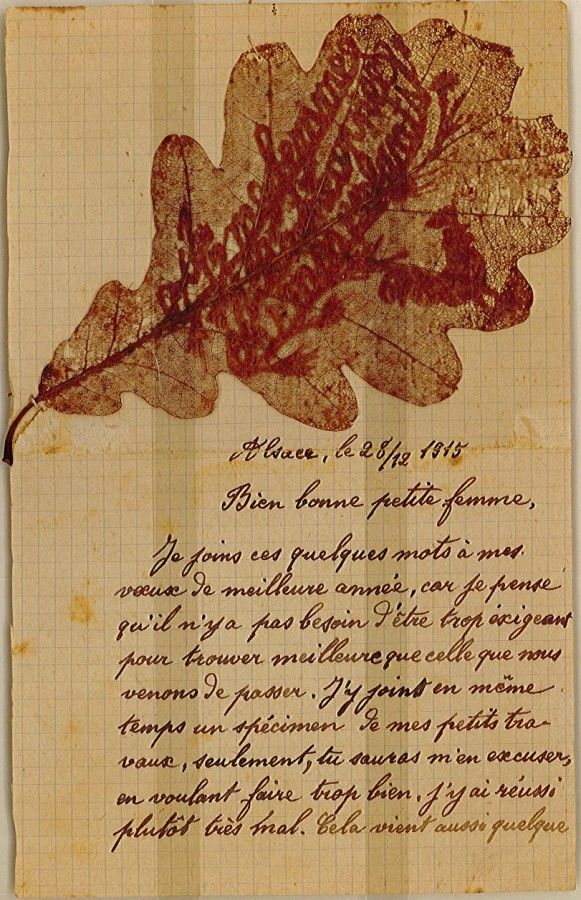 femmes
Alsace, le 28/12 1915
Bien bonne petite femme,
Je joins ces quelques mots à mes
vœux de meilleure année, car je pense
qu'il n'y a pas besoin d'être trop éxigeant
pour trouver meilleure que celle que nous
venons de passer. J'y joint en même
temps un spécimen de mes petits tra-
vaux, seulement, tu sauras m'en excuser,
en voulant faire trop bien, j'y ai réussi
plutôt très mal. Cela vient aussi quelque